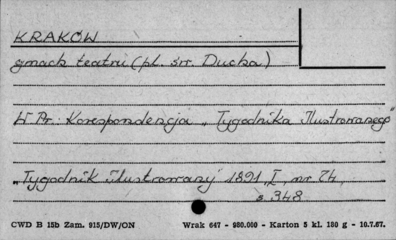 KRAKÓW
gmach teatru (pl. św. Ducha)
W. Pr.: Korespondencja „Tygodnika Ilustrowanego"
„Tygodnik Ilustrowany" 1891, I, nr. 74,
s 348
CWD B 15b Zam. 915/DW/ON Wrak 647 - 980.000 - Karton 5 kl. 180 g - 10.7.67.